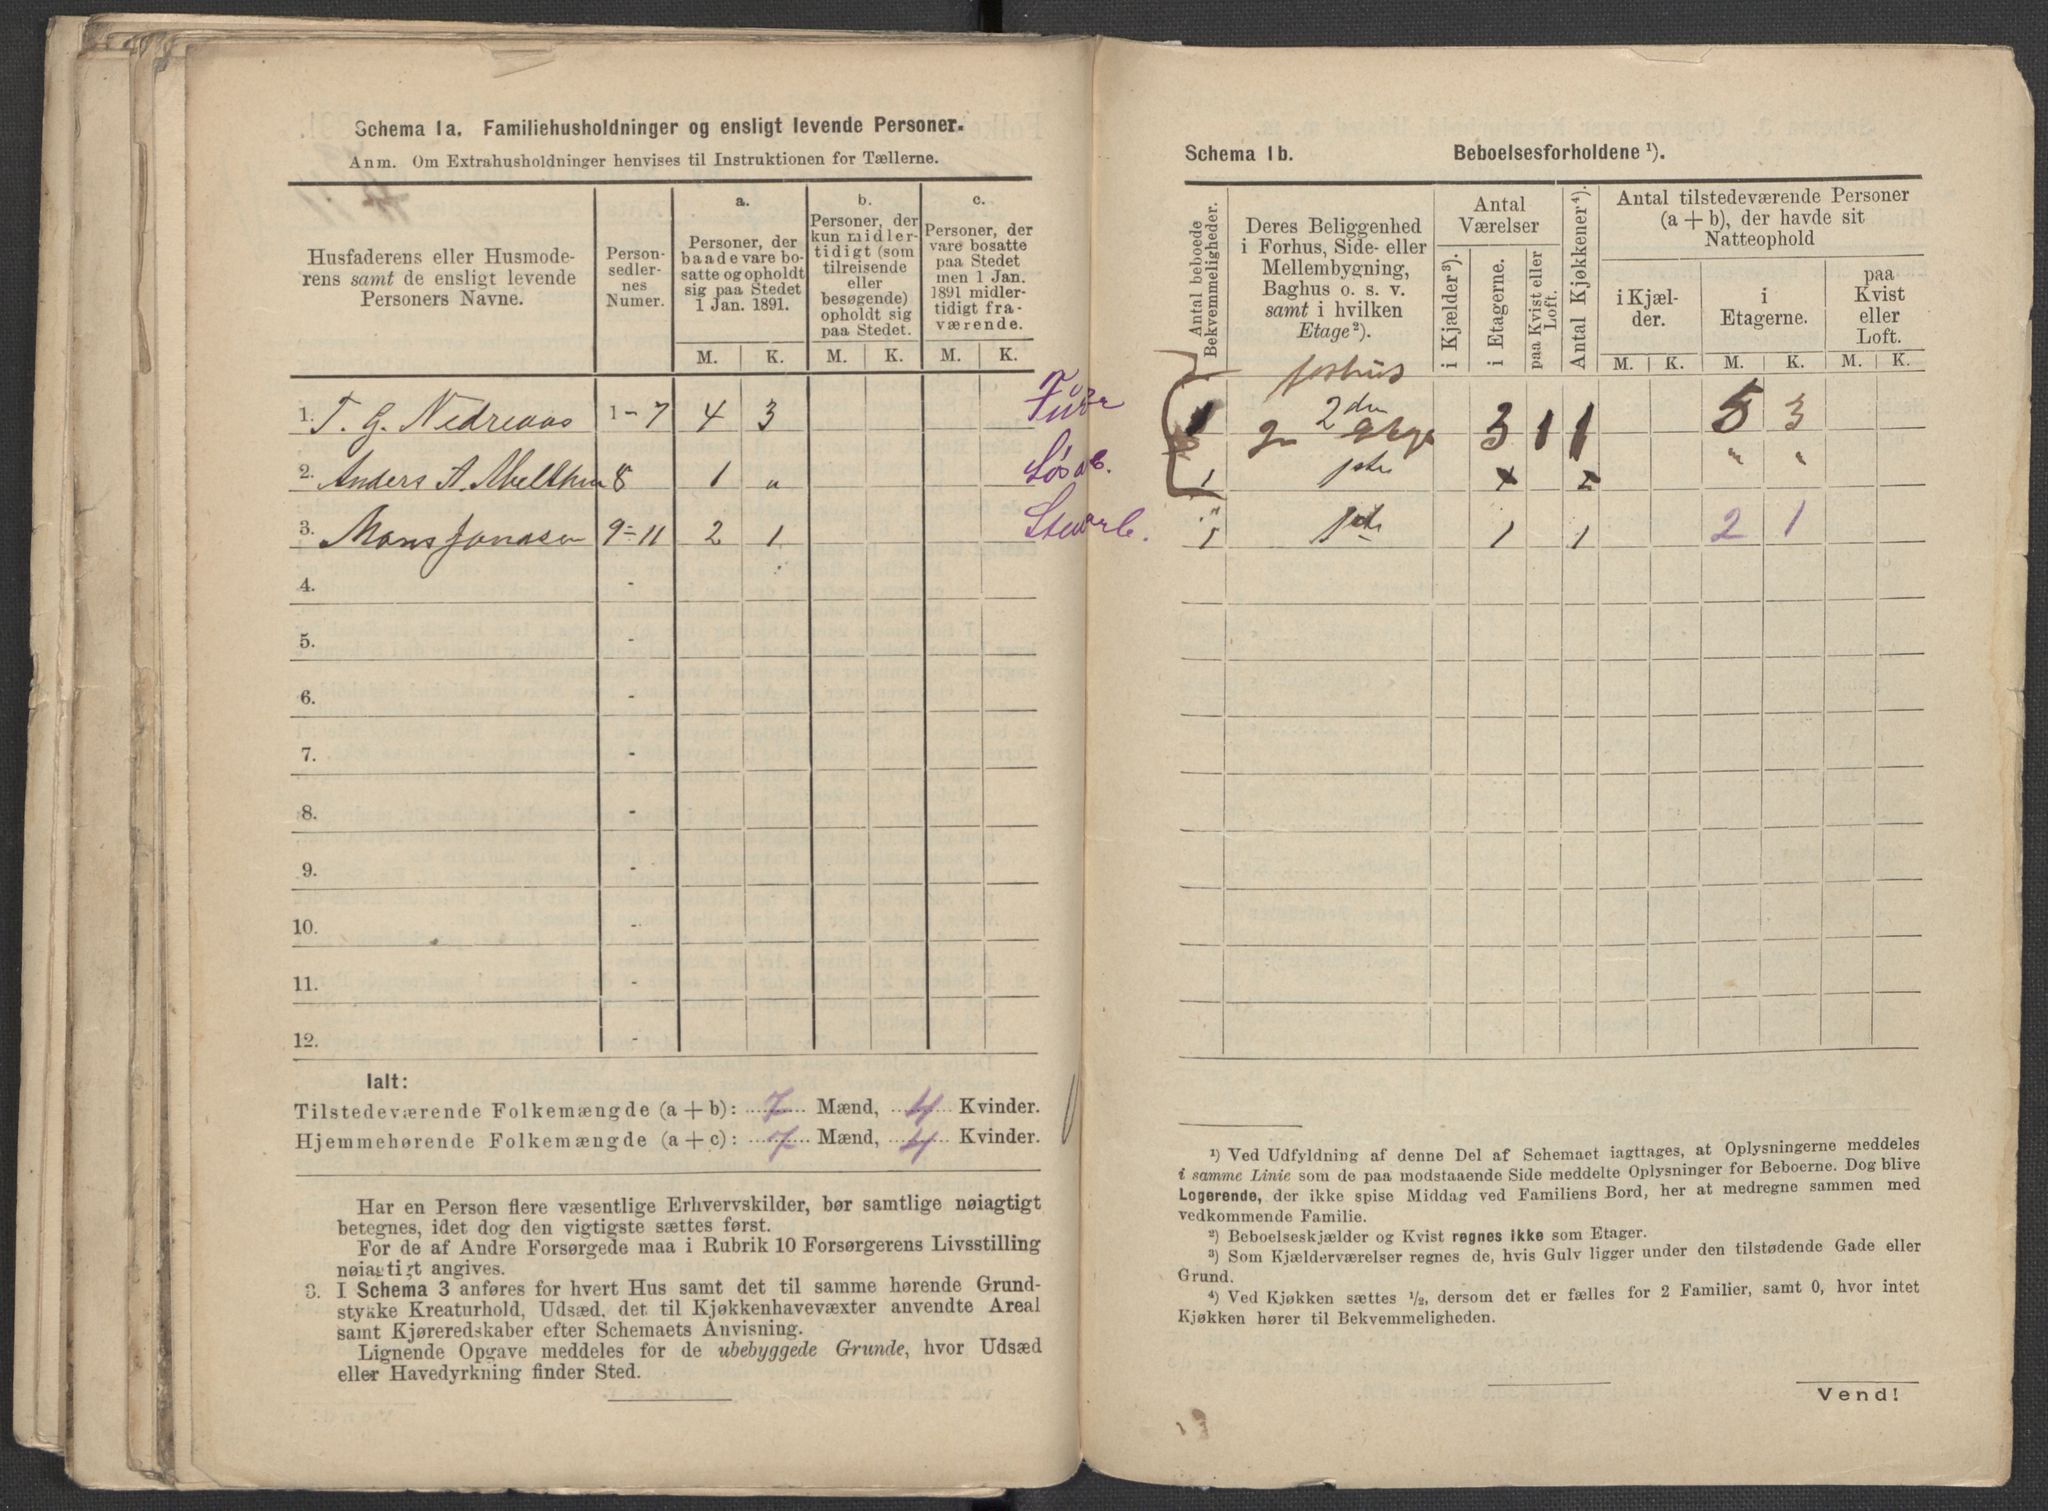 Schema 1a. Familiehusholdninger og ensligt levende Personer.
Anm. Om Extrahusholdninger henvises til Instruktionen for Tællerne.
Husfaderens eller Husmode-
rens samt de ensligt levende
Personers Navne.
Person-
sedler-
nes
Numer.
a.
Personer, der
baade vare bo-
satte og opholdt
sig paa Stedet
1 Jan. 1891.
b.
Personer, der
kun midler-
tidigt (som
tilreisende
eller
besøgende)
opholdt sig
paa Stedet.
c.
Personer, der
vare bosatte
paa Stedet
men 1 Jan.
1891 midler-
tidigt fra-
værende.
M. K. M. K. M. K.
1. T. G. Nedreaas 1-7 4 3
2. Anders A. 8 1 "
3. Mons Jonasen 9-11 2 1
4. -
5. -
6. -
7. -
8. -
9. -
10. -
11. -
12. -
Ialt:
Tilstedeværende Folkemængde (a + b): 7 Mænd, 4 Kvinder.
Hjemmehørende Folkemængde (a + c): 7 Mænd, 4 Kvinder.
Har en Person flere væsentlige Erhvervskilder, bør samtlige nøiagtigt
betegnes, idet dog den vigtigste sættes først.
For de af Andre Forsørgede maa i Rubrik 10 Forsørgerens Livsstilling
nøiagtigt angives.
3. I Schema 3 anføres for hvert Hus samt det til samme hørende Grund-
stykke Kreaturhold, Udsæd, det til Kjøkkenhavevæxter anvendte Areal
samt Kjøreredskaber efter Schemaets Anvisning.
Lignende Opgave meddeles for de ubebyggede Grunde, hvor Udsæd
eller Havedyrkning finder Sted.
Schema 1b. Beboelsesforholdene ¹).
Antal beboede
Bekvemmeligheder.
Deres Beliggenhed
i Forhus, Side- eller
Mellembygning,
Baghus o. s. v.
samt i hvilken
Etage ²).
Antal
Værelser
i Kjælder ³).
i Etagerne.
paa Kvist eller
Loft.
Antal Kjøkkener ⁴).
Antal tilstedeværende Personer
(a + b), der havde sit
Natteophold
i Kjæl-
der.
i
Etagerne.
paa
Kvist
eller
Loft.
M. K. M. K. M. K.
forhus
1 2den 3 1 1 5 3
1 1ste x x " "
1 1ste 1 1 2 1
¹) Ved Udfyldning af denne Del af Schemaet iagttages, at Oplysningerne meddeles
i samme Linie som de paa modstaaende Side meddelte Oplysninger for Beboerne. Dog blive
Logerende, der ikke spise Middag ved Familiens Bord, her at medregne sammen med
vedkommende Familie.
²) Beboelseskjælder og Kvist regnes ikke som Etager.
³) Som Kjælderværelser regnes de, hvis Gulv ligger under den tilstødende Gade eller
Grund.
⁴) Ved Kjøkken sættes ½, dersom det er fælles for 2 Familier, samt 0, hvor intet
Kjøkken hører til Bekvemmeligheden.
Vend!